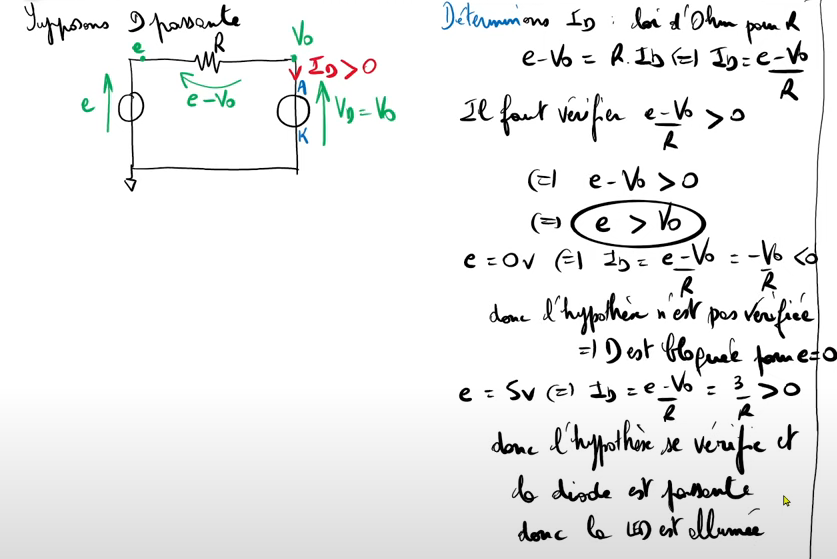 Supposons D passante
e
R
V₀
I_D > 0
e - V₀
A
e
V_D = V₀
K
Déterminons I_D : loi d'Ohm pour R
e - V₀ = R. I_D (=) I_D = e - V₀ / R
Il faut vérifier e - V₀ / R > 0
(=) e - V₀ > 0
(=) e > V₀
e = 0v (=) I_D = e - V₀ / R = -V₀ / R < 0
donc l'hypothèse n'est pas vérifiée
=) D est bloquée pour e=0
e = 5v (=) I_D = e - V₀ / R = 3 / R > 0
donc l'hypothèse se vérifie et
la diode est passante
donc la LED est allumée